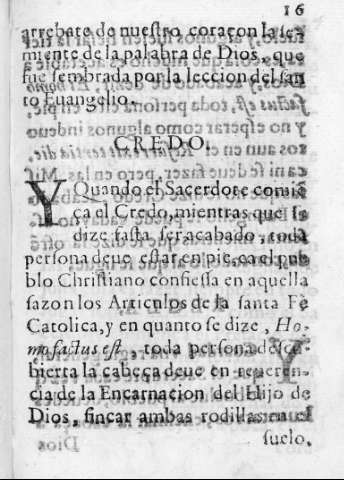 16
arrebate de nuestro coraçon la se-
miente de la palabra de Dios, que
fue sembrada por la leccion del san
to Euangelio.
CREDO.
Y Quando el Sacerdote comiē
ça el Credo, mientras que se
dize fasta ser acabado, toda
persona deue estar en pie, ca el pue
blo Christiano confiessa en aquella
sazon los Articulos de la santa Fè
Catolica, y en quanto se dize, Ho-
mo factus est, toda persona descu-
bierta la cabeça deue en reueren-
cia de la Encarnacion del Hijo de
Dios, fincar ambas rodillas en el
suelo.